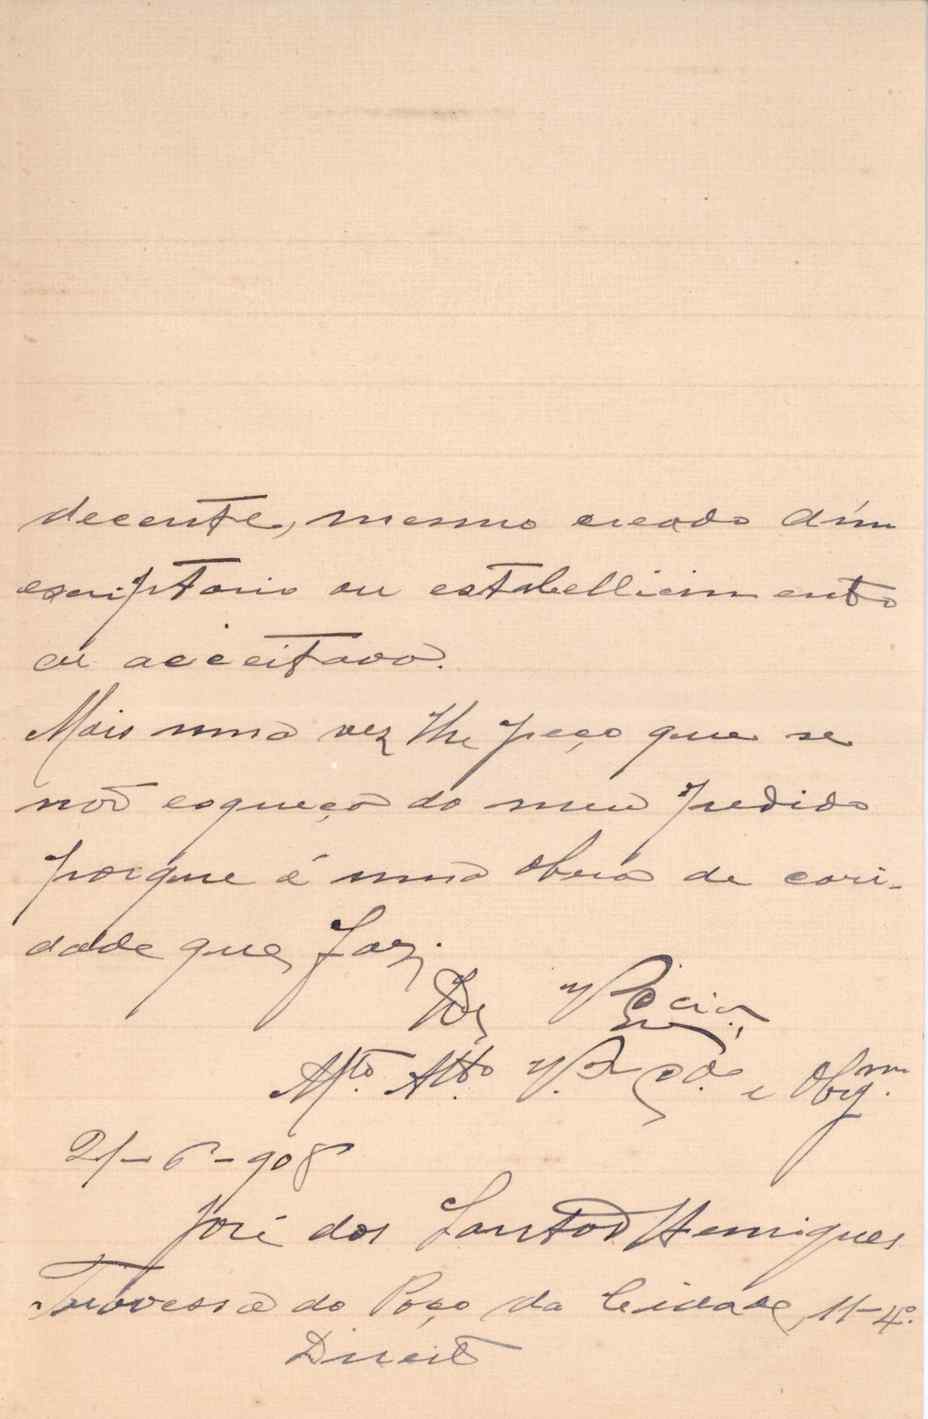 decente, mesmo creado d'um
escriptorio ou estabellicimento
eu acceitava.
Mais uma vez lhe peço que se
não esqueça do meu pedido
porque é uma obra de cari-
dade que faz.
De V. Ex.cia
M.to Att.o V.or e Obrg.mo
21-6-908
José dos Santos Henriques
Travessa do Poço da Cidade, 11-4.º
Direito